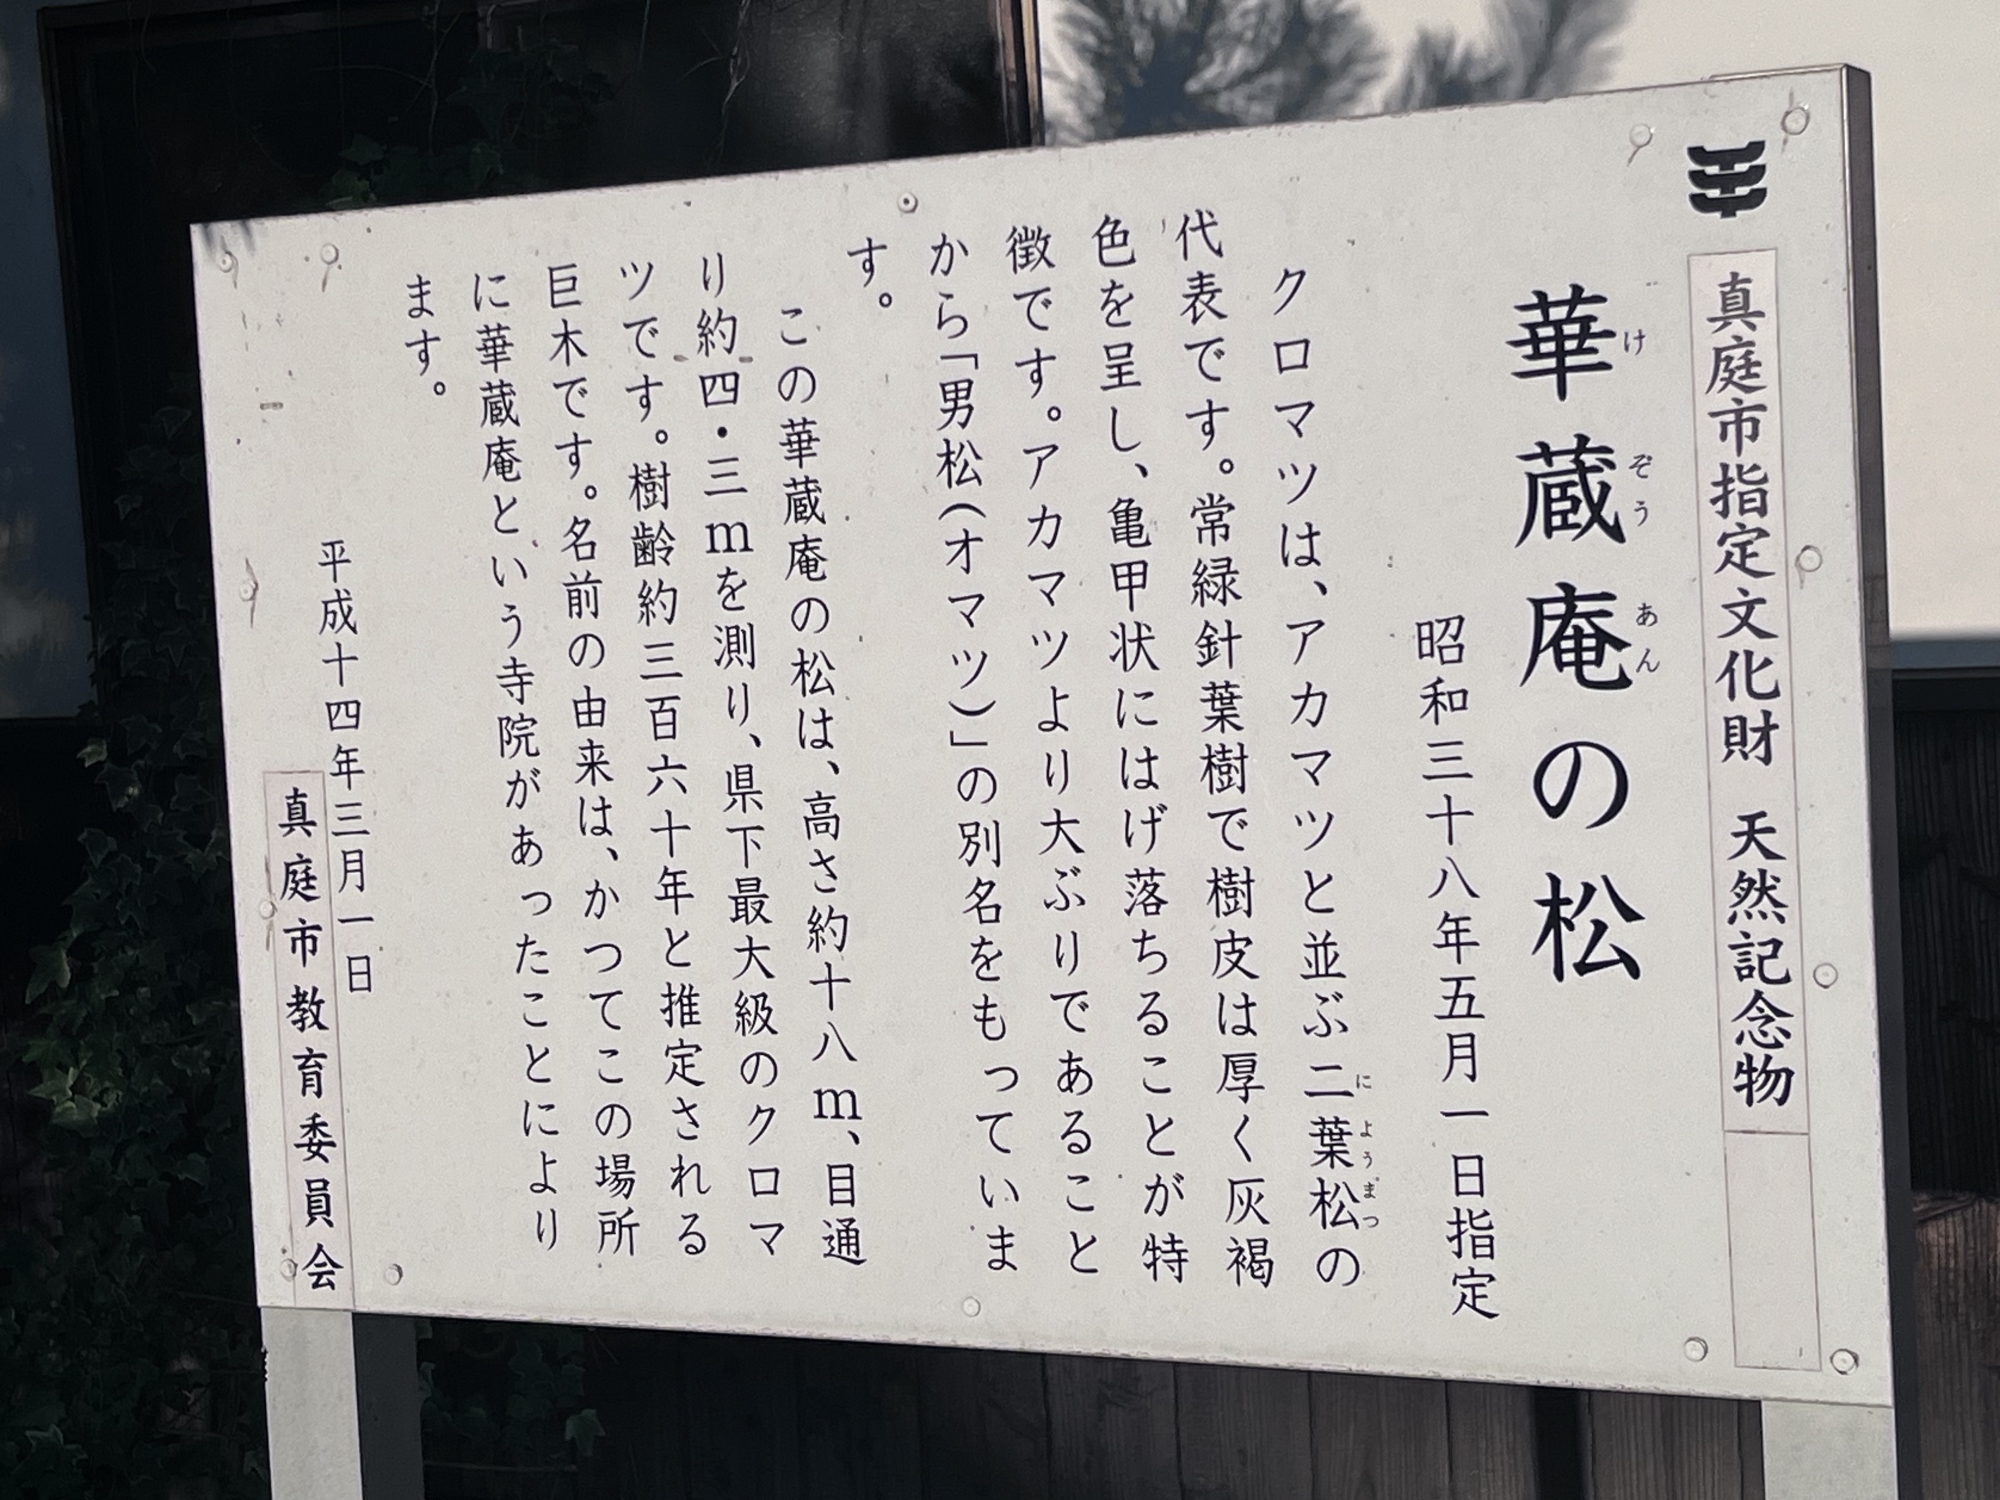 真庭市指定文化財　天然記念物
華蔵庵の松
けぞうあん
昭和三十八年五月一日指定
クロマツは、アカマツと並ぶ二葉松の
にようまつ
代表です。常緑針葉樹で樹皮は厚く灰褐
色を呈し、亀甲状にはげ落ちることが特
徴です。アカマツより大ぶりであること
から「男松（オマツ）」の別名をもっていま
す。
この華蔵庵の松は、高さ約十八m、目通
り約四・三mを測り、県下最大級のクロマ
ツです。樹齢約三百六十年と推定される
巨木です。名前の由来は、かつてこの場所
に華蔵庵という寺院があったことにより
ます。
平成十四年三月一日
真庭市教育委員会